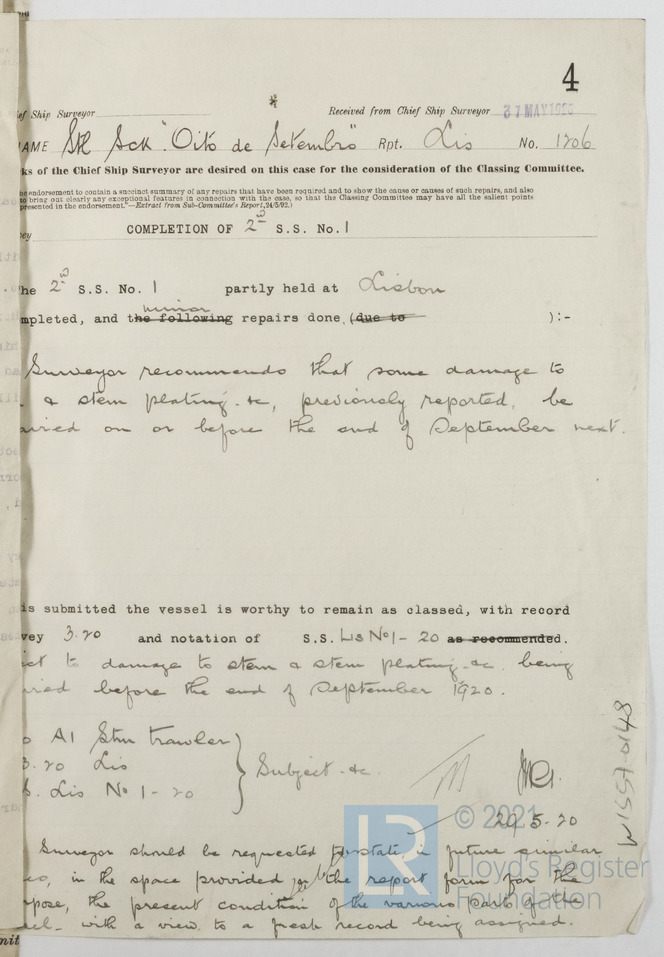 4
ef Ship Surveyor * Received from Chief Ship Surveyor 31 MAY 1920
AME Stl Sck "Oito de Setembro" Rpt. Lis No. 1206
ks of the Chief Ship Surveyor are desired on this case for the consideration of the Classing Committee.
he endorsement to contain a succinct summary of any repairs that have been required and to show the cause or causes of such repairs, and also
to bring out clearly any exceptional features in connection with the case, so that the Classing Committee may have all the salient points
presented in the endorsement."—Extract from Sub-Committee's Report, 24/5/92.)
ey COMPLETION OF 2nd S.S. No. 1
he 2nd S.S. No. 1 partly held at Lisbon
mpleted, and the following minor repairs done, (due to ):-
Surveyor recommends that some damage to
& stem plating &c, previously reported, be
aired on or before the end of September next.
is submitted the vessel is worthy to remain as classed, with record
vey 3.20 and notation of S.S. Lis No 1 - 20 as recommended.
ect to damage to stem & stem plating &c. being
ired before the end of September 1920.
o A1 Stm trawler
3.20 Lis } Subject &c.
S. Lis No 1 - 20
29.5.20
© 2021
Lloyd's Register
Foundation
LR
Surveyor should be requested to state in future similar
, in the space provided in the report form for the
rpose, the present condition of the various parts of the
sel - with a view to a fresh record being assigned.
W1557-0148
mit